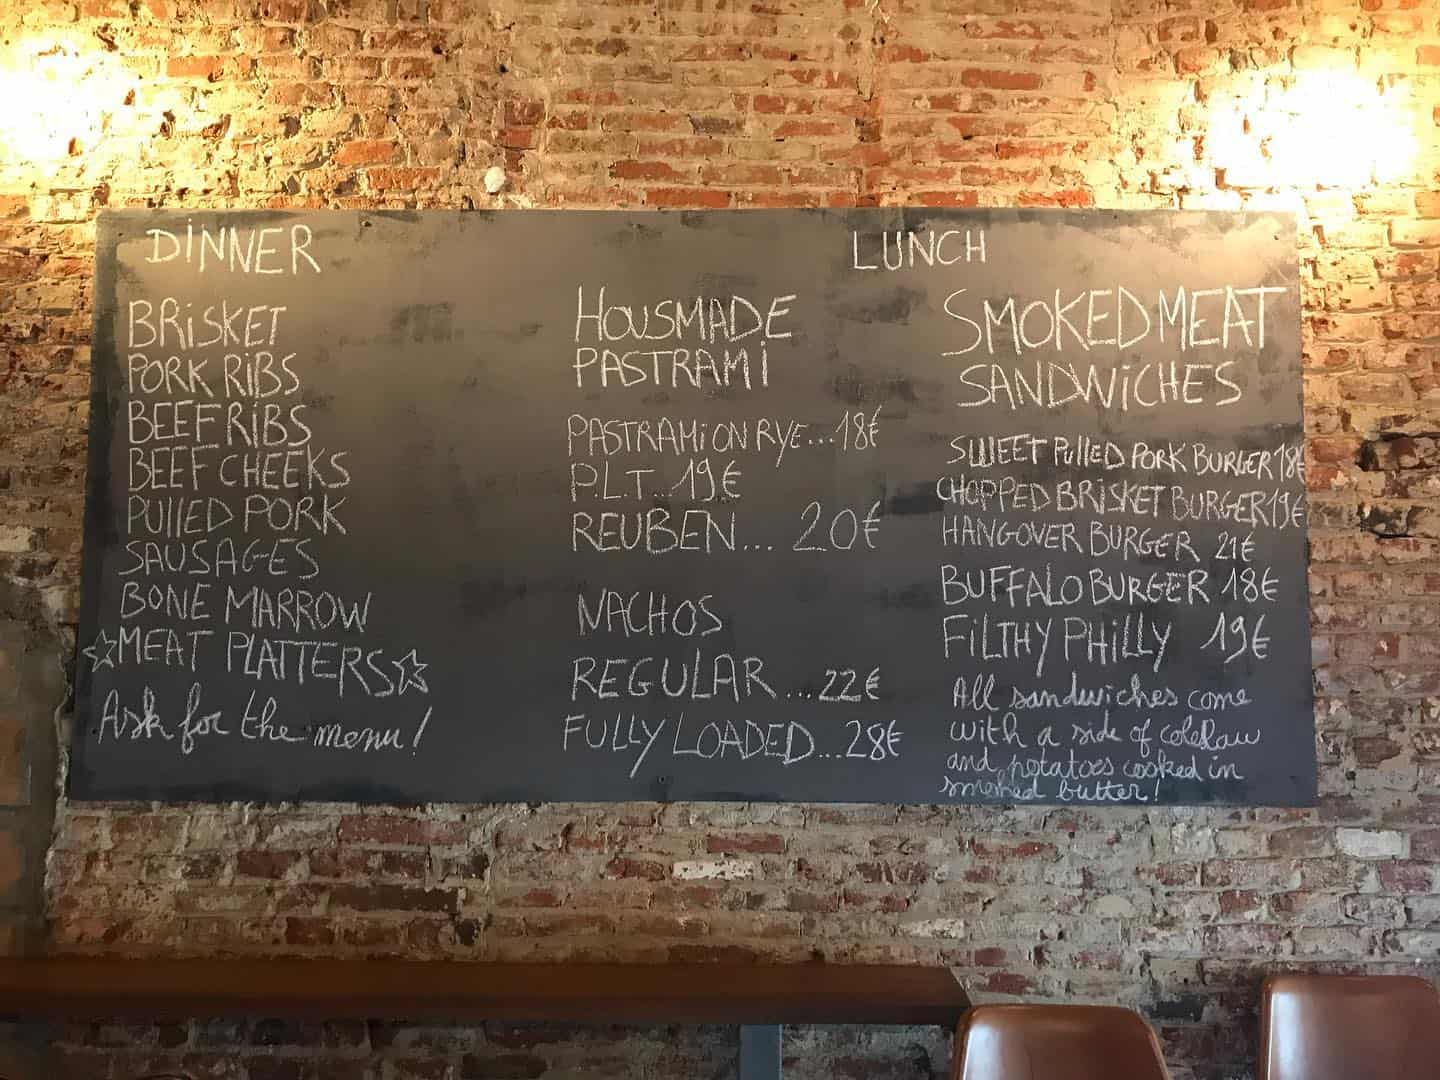 DINNER
BRISKET
PORK RIBS
BEEF RIBS
BEEF CHEEKS
PULLED PORK
SAUSAGES
BONE MARROW
☆MEAT PLATTERS☆
Ask for the menu!
LUNCH
HOUSMADE
PASTRAMI
PASTRAMI ON RYE...18€
P.L.T...19€
REUBEN... 20€
NACHOS
REGULAR...22€
FULLY LOADED...28€
SMOKED MEAT
SANDWICHES
SWEET PULLED PORK BURGER 18€
CHOPPED BRISKET BURGER 19€
HANGOVER BURGER 21€
BUFFALO BURGER 18€
FILTHY PHILLY 19€
All sandwiches come
with a side of coleslaw
and potatoes cooked in
smoked butter!